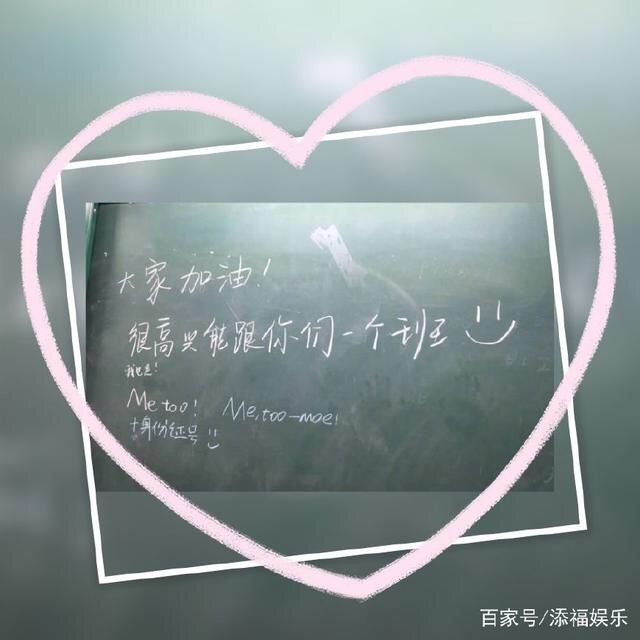 大家加油!
很高兴能跟你们一个班
我也是!
Me too! Me,too—moe!
+身份证号
百家号/添福娱乐